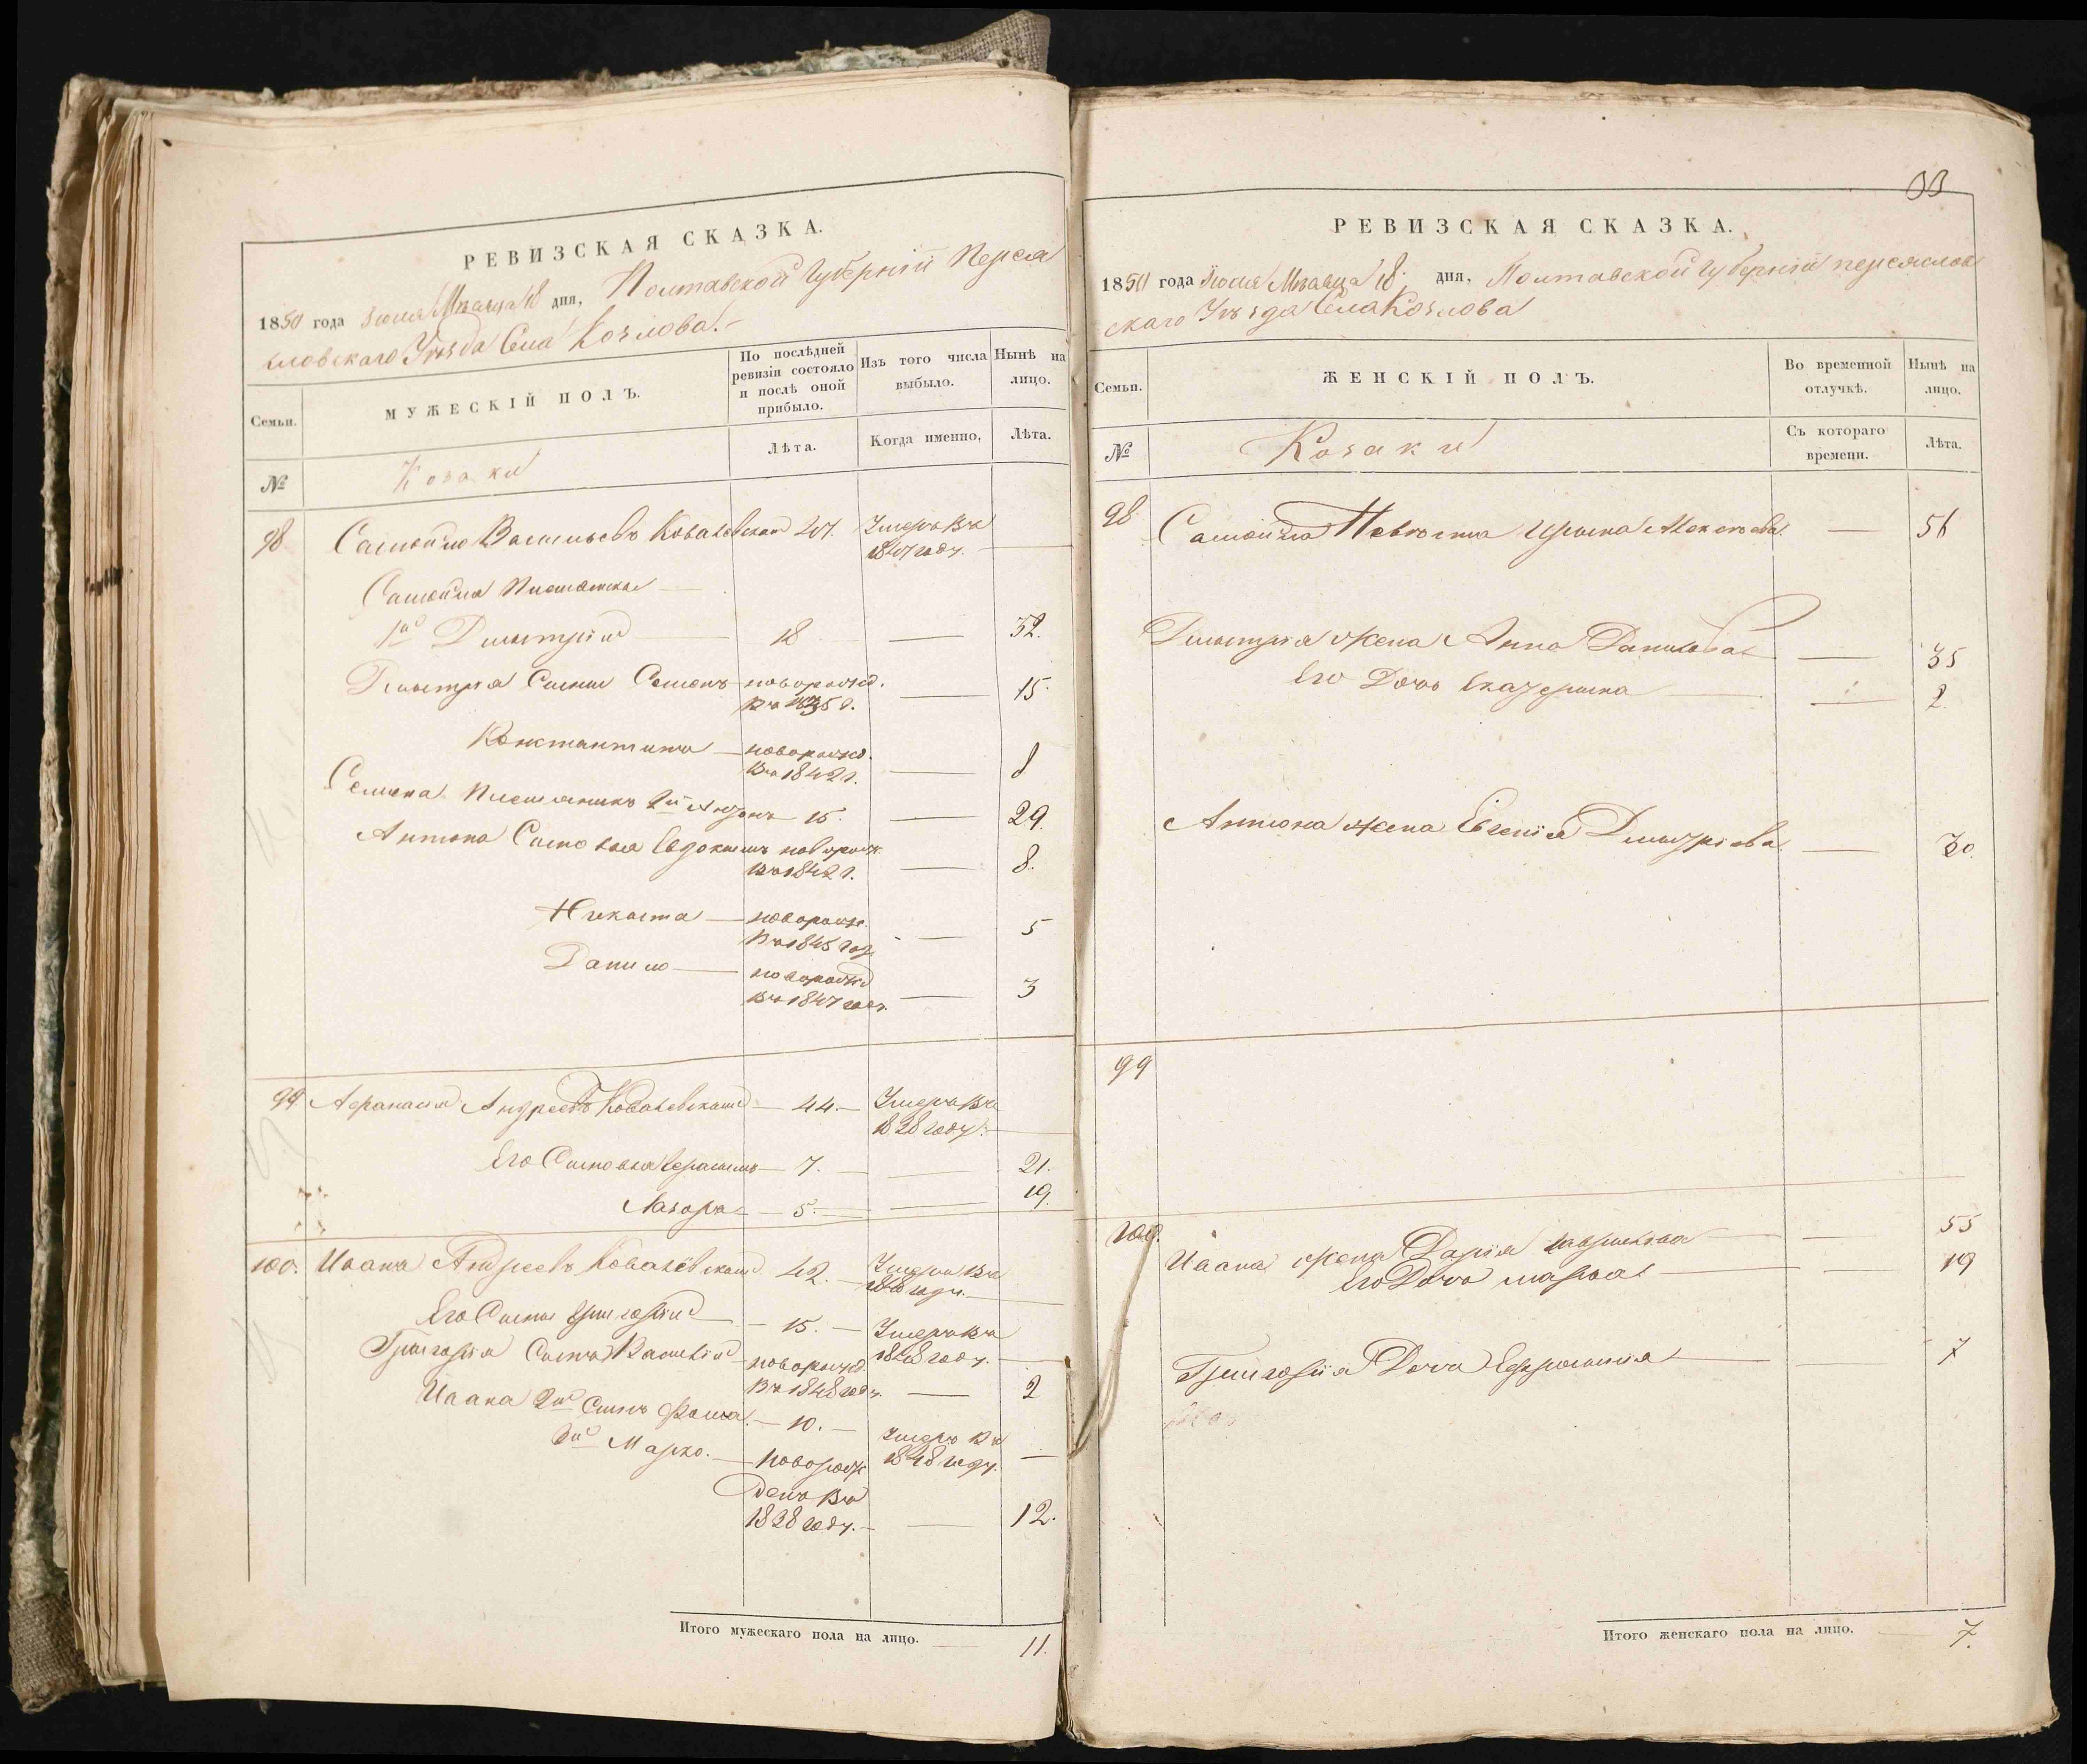 РЕВИЗСКАЯ СКАЗКА.
1850 года Июня Мѣсяца 18 дня, Полтавской Губерніи Перея
словскаго Уѣзда Села Козлова.
Семьи.
МУЖЕСКІЙ ПОЛЪ.
По послѣдней ревизіи состояло и послѣ оной прибыло.
Изъ того числа выбыло.
Нынѣ на лицо.
№
Козаки
Лѣта.
Когда именно,
Лѣта.
98 Самойло Васильевъ Ковалевскій Умеръ въ
184 году.
Самойла
1й Дмитрій 18 32.
Дмитрія Сынъ Семенъ новорожд. 15
въ 1835 г.
Константинъ новорожд. 8
въ 1842 г.
Семена Племянникъ 2й Антонъ 15. 29.
Антона Сыновья Евдокимъ новорож 8.
въ 1842 г.
Никита новорож 5
въ 1845 год
Данило новорожд 3
въ 1847 году.
99 Афанасій Андреевъ Ковалевскій 44. Умеръ въ
1838 году.
Его Сыновья Герасимъ 7. 21.
Лазаръ 5. 19.
100. Иванъ Андреевъ Ковалевскій 42. Умеръ въ
1848 году.
Его Сынъ Григорій 15. Умеръ въ
1848 году.
Григорія Сынъ Василій новорожд. 2
въ 1848 году.
Ивана 2й Сынъ Фома. 10. Умеръ въ
1848 году.
3й Марко. новорож
денъ въ
1838 году. 12.
Итого мужескаго пола на лицо. 11.
РЕВИЗСКАЯ СКАЗКА.
1850 года Июня Мѣсяца 18. дня, Полтавской Губерніи переяслов
скаго Уѣзда Села Козлова
Семьи.
ЖЕНСКІЙ ПОЛЪ.
Во временной отлучкѣ.
Нынѣ на лицо.
№
Козаки
Съ котораго времени.
Лѣта.
98 Самойла Невѣстка Ирина Алексѣева 56
Дмитрія Жена Анна Данилова 35
Его Дочь Екатерина 2.
Антона Жена Евгенія Дмитріева 30.
99
100. Ивана Жена Дарія 55
Его Дочь Марфа 19
Григорія Дочь Ефросинія 7
Итого женскаго пола на лицо. 7.